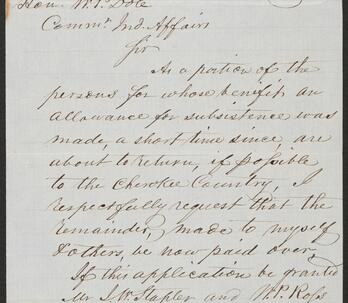 Hon. W. P. Dole
Commr. Ind. Affairs
Sir
As a portion of the
persons for whose benefit an
allowance for subsistence was
made, a short time since, are
about to return, if possible
to the Cherokee Country, I
respectfully request that the
remainder, made to myself
& others, be now paid over.
If this application be granted
Mr J. W. Stapler and W. P. Ross